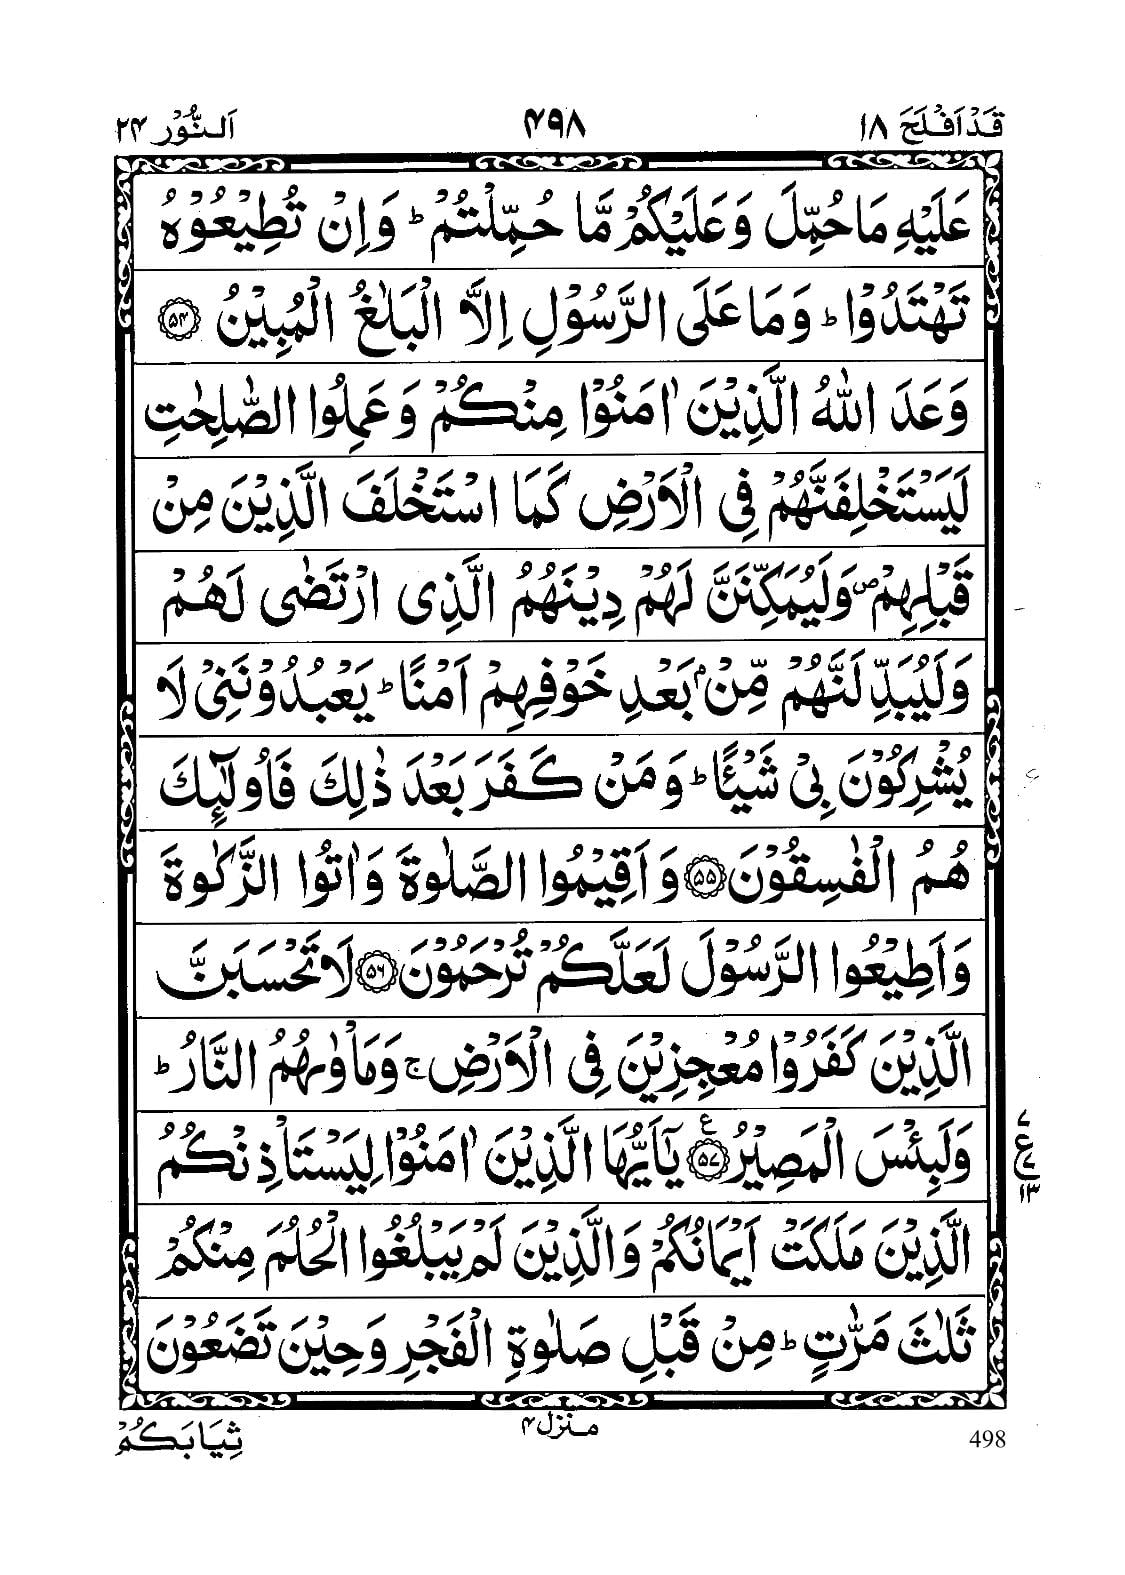 قَدْ اَفْلَحَ ۱۸
۴۹۸
اَلنُّوْر ۲۴
عَلَيْهِ مَا حُمِّلَ وَعَلَيْكُمْ مَّا حُمِّلْتُمْ ؕ وَاِنْ تُطِيْعُوْهُ
تَهْتَدُوْا ؕ وَمَا عَلَى الرَّسُوْلِ اِلَّا الْبَلٰغُ الْمُبِيْنُ ﴿۵۴﴾
وَعَدَ اللّٰهُ الَّذِيْنَ اٰمَنُوْا مِنْكُمْ وَعَمِلُوا الصّٰلِحٰتِ
لَيَسْتَخْلِفَنَّهُمْ فِي الْاَرْضِ كَمَا اسْتَخْلَفَ الَّذِيْنَ مِنْ
قَبْلِهِمْ ۪ وَلَيُمَكِّنَنَّ لَهُمْ دِيْنَهُمُ الَّذِى ارْتَضٰى لَهُمْ
وَلَيُبَدِّلَنَّهُمْ مِّنْۢ بَعْدِ خَوْفِهِمْ اَمْنًا ؕ يَعْبُدُوْنَنِيْ لَا
يُشْرِكُوْنَ بِيْ شَيْـًٔا ؕ وَمَنْ كَفَرَ بَعْدَ ذٰلِكَ فَاُولٰٓئِكَ
هُمُ الْفٰسِقُوْنَ ﴿۵۵﴾ وَاَقِيْمُوا الصَّلٰوةَ وَاٰتُوا الزَّكٰوةَ
وَاَطِيْعُوا الرَّسُوْلَ لَعَلَّكُمْ تُرْحَمُوْنَ ﴿۵۶﴾ لَا تَحْسَبَنَّ
الَّذِيْنَ كَفَرُوْا مُعْجِزِيْنَ فِى الْاَرْضِ ۚ وَمَاْوٰىهُمُ النَّارُ ؕ
وَلَبِئْسَ الْمَصِيْرُ ﴿۵۷﴾ ع يٰٓاَيُّهَا الَّذِيْنَ اٰمَنُوْا لِيَسْتَاْذِنْكُمُ
۷
ع
۷
۱۳
الَّذِيْنَ مَلَكَتْ اَيْمَانُكُمْ وَالَّذِيْنَ لَمْ يَبْلُغُوا الْحُلُمَ مِنْكُمْ
ثَلٰثَ مَرّٰتٍ ؕ مِنْ قَبْلِ صَلٰوةِ الْفَجْرِ وَحِيْنَ تَضَعُوْنَ
498
منزل ۴
ثِيَابَكُمْ